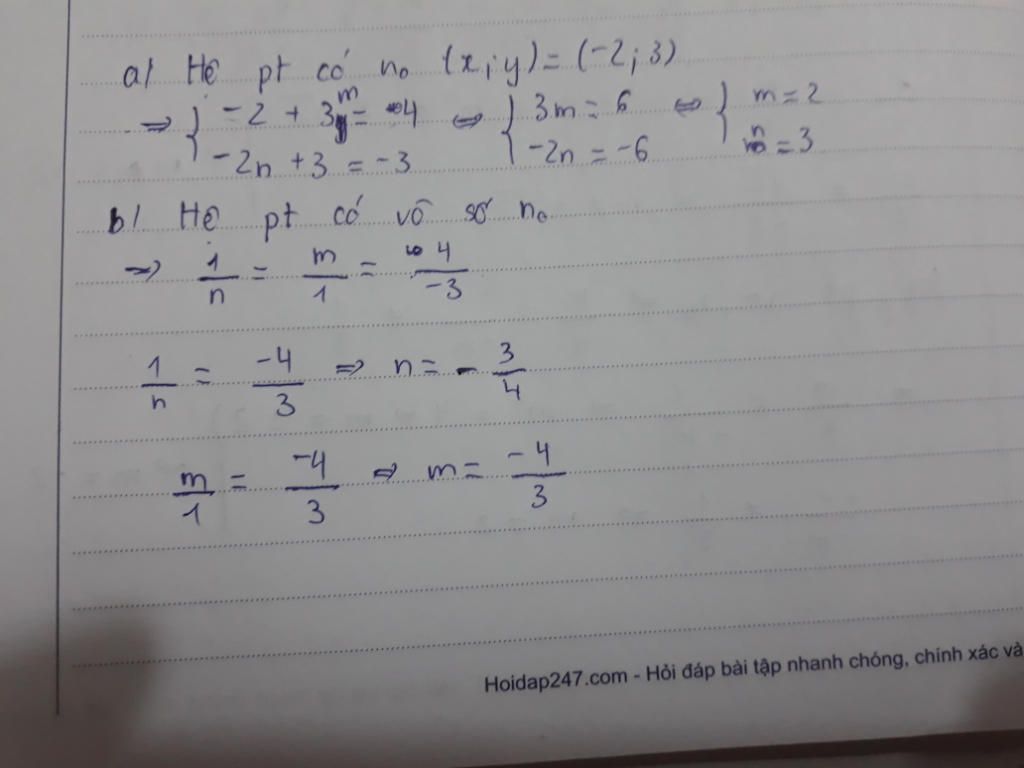 a/ Hệ pt có n₀ (x;y) = (-2;3)
=> { -2 + 3m = 4 <=> { 3m = 6 <=> { m = 2
-2n + 3 = -3 -2n = -6 n = 3
b/ Hệ pt có vô số n₀
=> 1/n = m/1 = 4/-3
1/n = -4/3 => n = - 3/4
m/1 = -4/3 => m = -4/3
Hoidap247.com - Hỏi đáp bài tập nhanh chóng, chính xác và